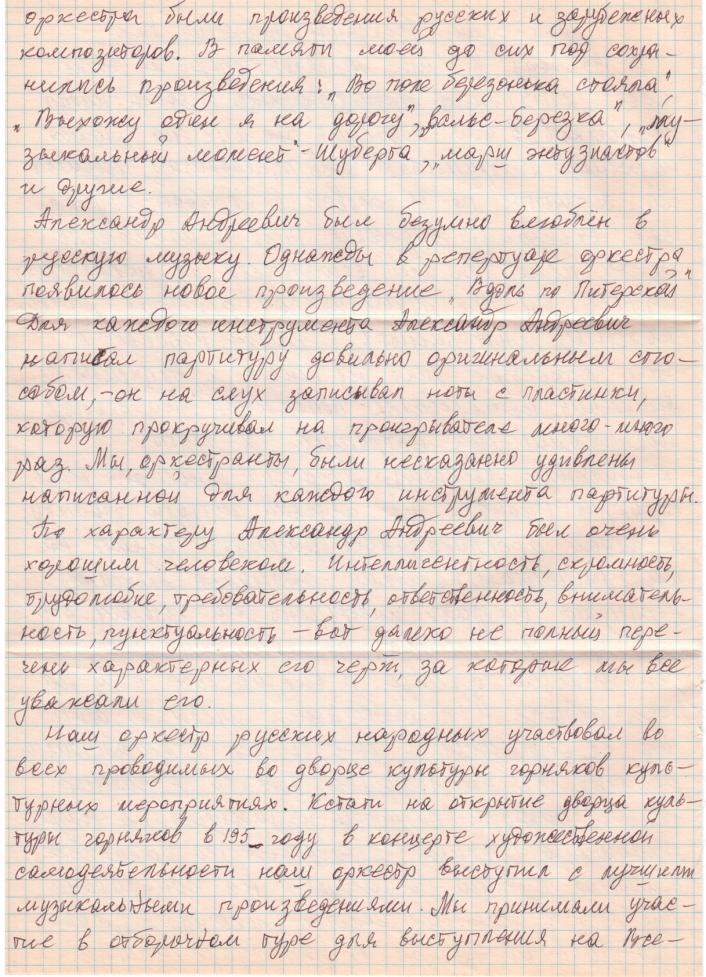 оркестра были произведения русских и зарубежных
композиторов. В памяти моей до сих пор сохра-
нились произведения: „Во поле березонька стояла",
„Выхожу один я на дорогу", „вальс-березка", „му-
зыкальный момент"-Шуберта, „марш энтузиастов"
и другие.
Александр Андреевич был безумно влюблён в
русскую музыку. Однажды в репертуаре оркестра
появилось новое произведение „Вдоль по Питерской"
Для каждого инструмента Александр Андреевич
написал партитуру довильно оригинальным спо-
собом, -он на слух записывал ноты с пластинки,
которую прокручивал на проигрывателе много-много
раз. Мы, оркестранты, были несказанно удивлены
написанной для каждого инструмента партитуры.
По характеру Александр Андреевич был очень
хорошим человеком. Интеллигентность, скромность,
трудолюбие, требовательность, ответственность, вниматель-
ность, пунктуальность – вот далеко не полный пере-
чень характерных его черт, за которые мы все
уважали его.
Наш оркестр русских народных участвовал во
всех проводимых во дворце культуры горняков куль-
турных мероприятиях. Кстати на открытие дворца куль-
туры горняков в 195_ году в концерте художественной
самодеятельности наш оркестр выступил с лучшими
музыкальными произведениями. Мы принимали учас-
тие в отборочном туре для выступления на Все-